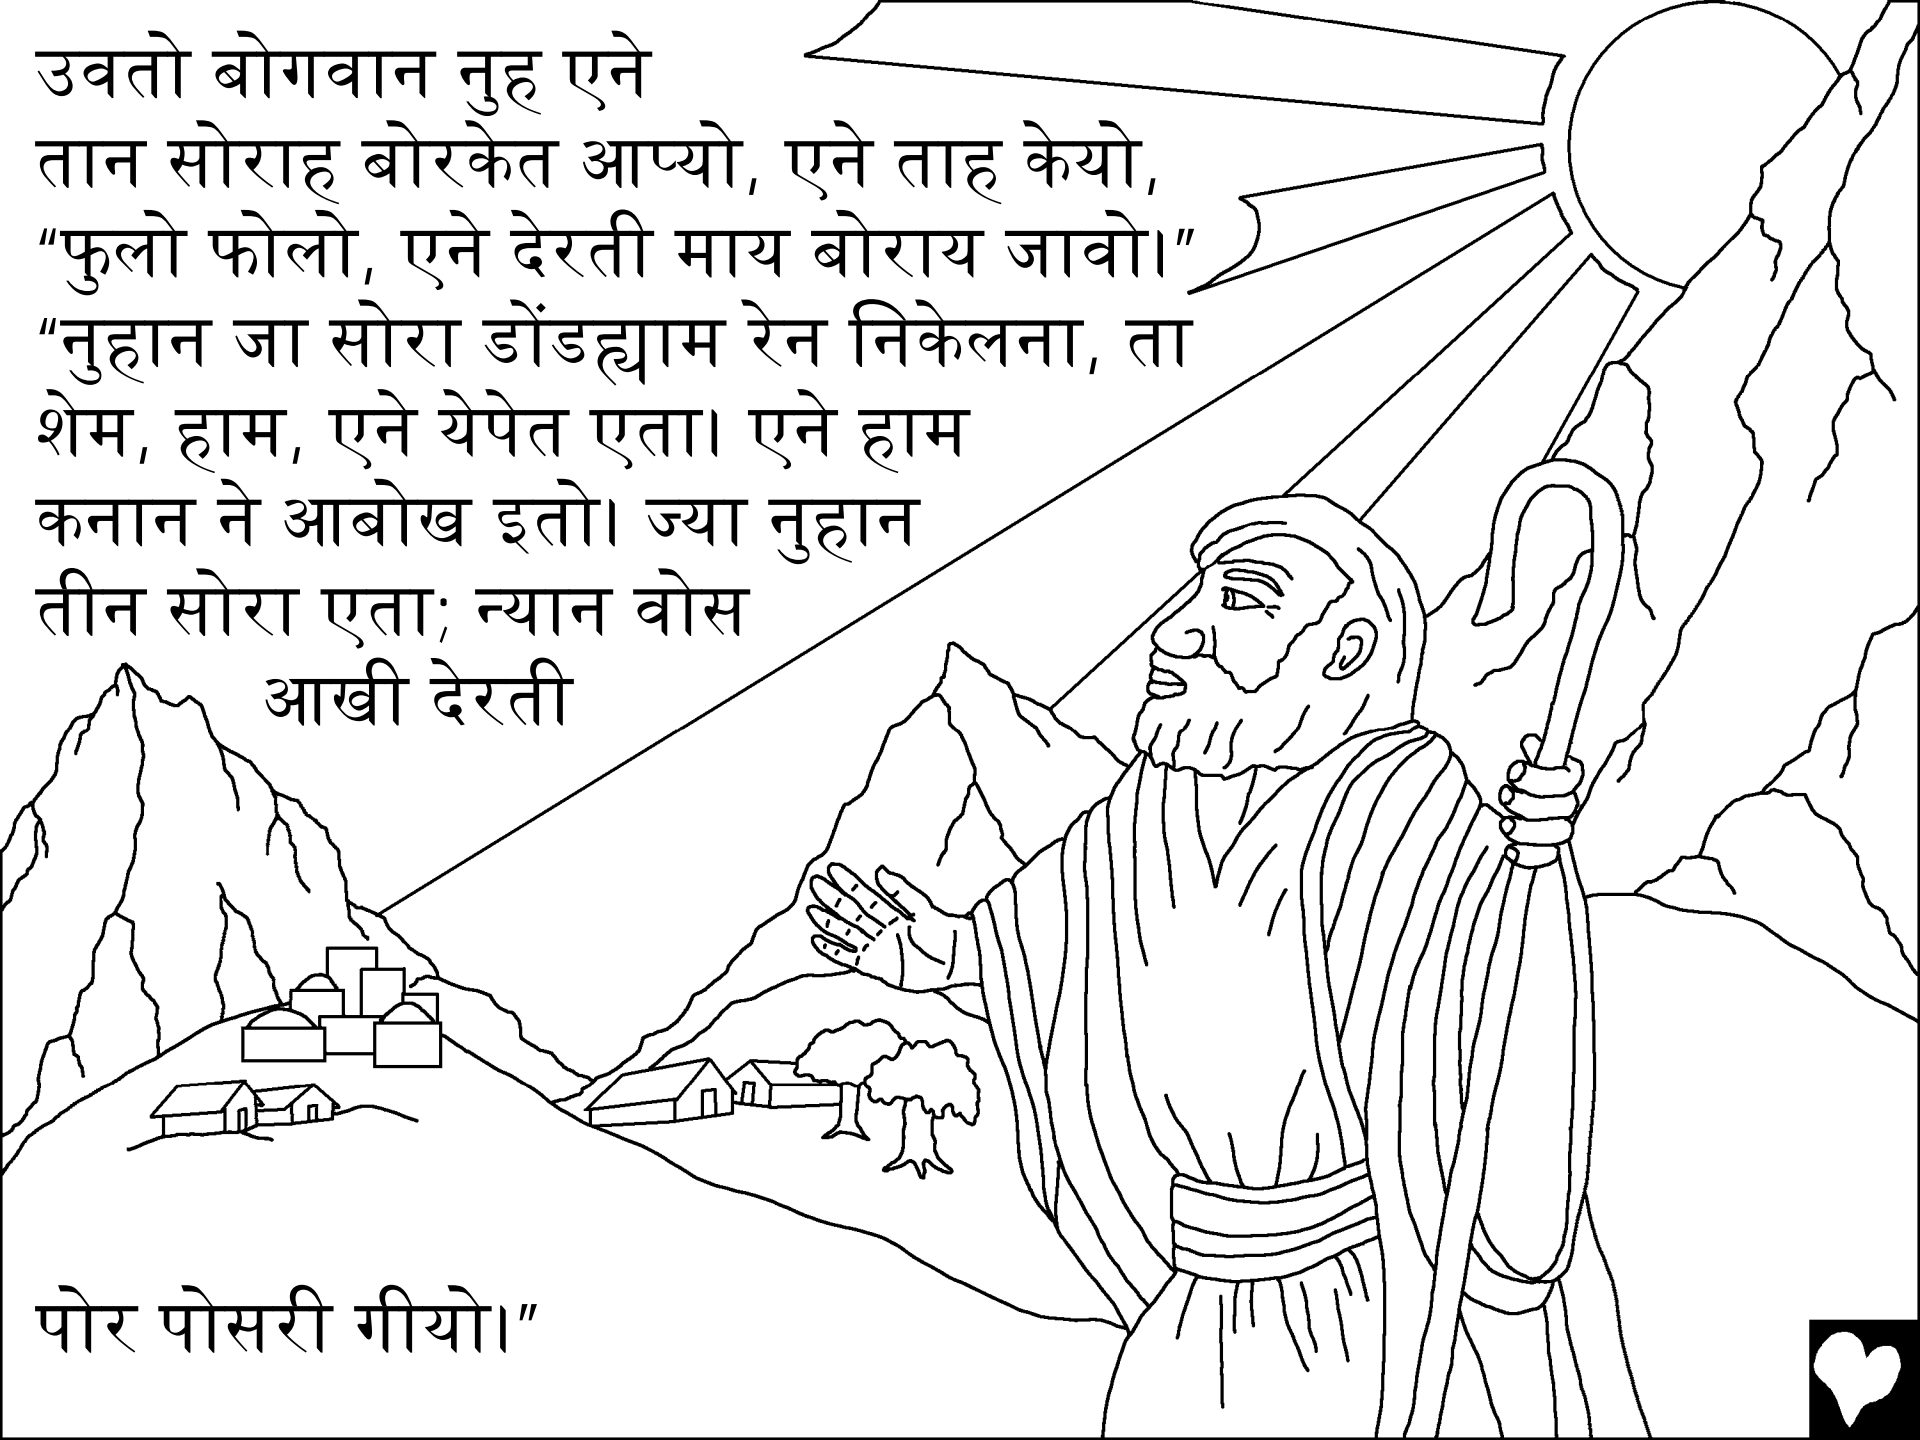 उवतो बोगवान नुह एने
तान सोराह बोरकेत आप्यो, एने ताह केयो,
“फुलो फोलो, एने देरती माय बोराय जावो।”
“नुहान जा सोरा डोंडह्याम रेन निकेलना, ता
शेम, हाम, एने येपेत एता। एने हाम
कनान ने आबोख इतो। ज्या नुहान
तीन सोरा एता; न्यान वोस
आखी देरती
पोर पोसरी गीयो।”